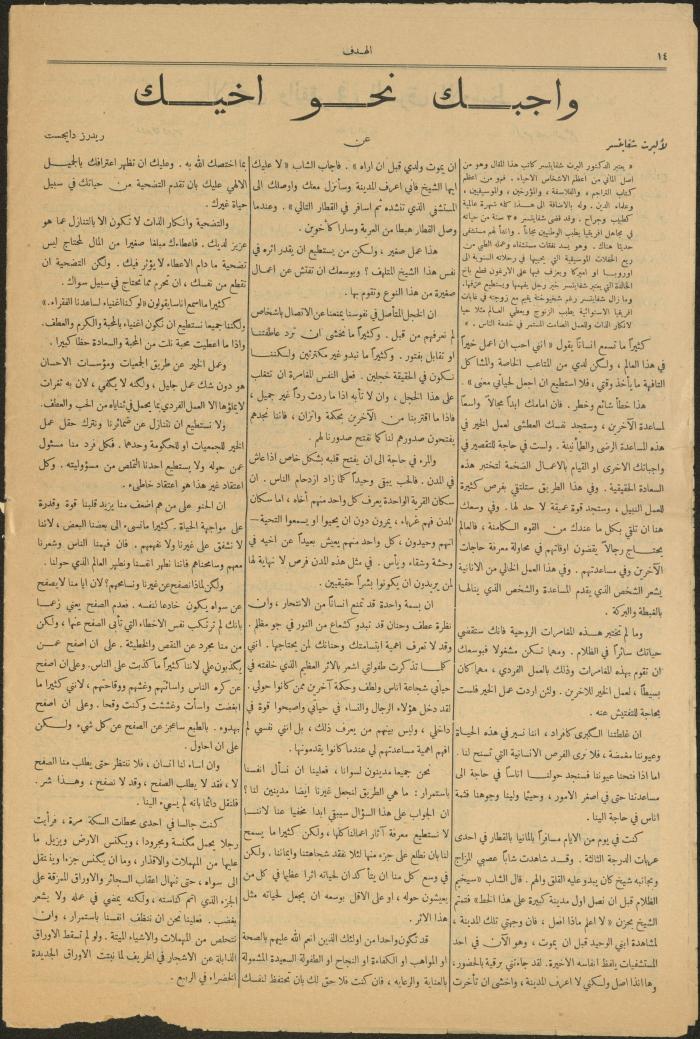 ١٤
الهدف
واجبك نحو اخيك
لألبرت شفايتسر
عن
ريدرز دايجست
« يعتبر الدكتور البرت شفايتسر كاتب هذا المقال وهو من
اصل الماني من اعظم الاشخاص الاحياء . فهو من اعظم
كتاب التراجم ، والفلاسفة ، والمؤرخين ، والموسيقيين ،
وعلماء الدين . وله بالاضافة الى هذا كله شهرة عالمية
كطبيب وجراح . وقد قضى شفايتسر ٣٥ سنة من حياته
في مجاهل افريقيا يطبب الوطنيين مجاناً . وانشأ لهم مستشفى
حديثا هناك . وهو يسد نفقات مستشفاه وعمله الطبي من
ريع الحفلات الموسيقية التي يحييها في رحلاته السنوية الى
اوروبا او اميركا ويعزف فيها على الارغون قطع باخ
الخالدة التي يعتبر شفايتسر خير رجل يفهمها ويستطيع عزفها.
وما زال شفايتسر رغم شيخوخته يقيم مع زوجته في غابات
افريقيا الاستوائية يطبب الزنوج ويعطي العالم مثلا حيا
لانكار الذات وللعمل الصامت المستمر في خدمة الناس . »
كثيراً ما تسمع انساناً يقول « انني احب ان اعمل خيراً
في هذا العالم ، ولكن لدي من المتاعب الخاصة والمشاكل
التافهة ما يأخذ وقتي ، فلا استطيع ان اجعل لحياتي معنى » .
هذا خطأ شائع وخطر . فان امامك ابداً مجالاً واسعاً
لمساعدة الآخرين ، وستجد نفسك العطشى لعمل الخير في
هذه المساعدة الرضى والطمأنينة . ولست في حاجة للتقصير في
واجباتك الاخرى او القيام بالاعمال الضخمة لتختبر هذه
السعادة الحقيقية . وفي هذا الطريق ستلتقي بفرص كثيرة
للعمل النبيل ، وستجد قوة عميقة لا حد لها . وفي وسعك
هنا ان تلقي بكل ما عندك من القوه الكامنة ، فالعالم
يحتاج رجالاً يقضون اوقاتهم في محاولة معرفة حاجات
الآخرين وفي مساعدتهم . وفي هذا العمل الخالي من الانانية
يشعر الشخص الذي يقدم المساعدة والشخص الذي ينالها
بالغبطة والبركة .
وما لم تختبر هذه المغامرات الروحية فانك ستقضي
حياتك سائراً في الظلام . ومهما تكن مشغولا فبوسعك
ان تقوم بهذه المغامرات وذلك بالعمل الفردي ، مهما كان
بسيطاً ، لعمل الخير للاخرين . ولئن اردت عمل الخير فلست
بحاجة للتفتيش عنه .
ان غلطتنا الكبرى كافراد ، اننا نسير في هذه الحياة
وعيوننا مغمضة ، فلا نرى الفرص الانسانية التي تسنح لنا .
اما اذا فتحنا عيوننا فسنجد حولنا اناساً في حاجة الى
مساعدتنا حتى في اصغر الامور ، وحيثما ولينا وجوهنا فثمة
اناس في حاجة الينا .
كنت في يوم من الايام مسافراً بالمانيا بالقطار في احدى
عربات الدرجة الثالثة . وقد شاهدت شاباً عصبي المزاج
وبجانبه شيخ كان يبدو عليه القلق والهم . قال الشاب « سيخيم
الظلام قبل ان نصل اول مدينة كبيرة على هذا الخط» فتمتم
الشيخ بحزن « لا اعلم ماذا افعل ، فان وجهتي تلك المدينة ،
لمشاهدة ابني الوحيد قبل ان يموت ، وهو الآن في احد
المستشفيات يلفظ انفاسه الاخيرة. لقد جاءتني برقية بالحضور،
وها انذا اصل ولكني لا اعرف المدينة ، واخشى ان تأخرت
ان يموت ولدي قبل ان اراه » . فاجاب الشاب « لا عليك
ايها الشيخ فاني اعرف المدينة وسأنزل معك واوصلك الى
المستشفى الذي تنشده ثم اسافر في القطار التالي » . وعندما
وصل القطار هبطا من العربة وسارا كأخوين .
هذا عمل صغير ، ولكن من يستطيع ان يقدر اثره في
نفس هذا الشيخ المتلهف ؟ وبوسعك ان تفتش عن اعمال
صغيرة من هذا النوع وتقوم بها .
ان الخجل المتأصل في نفوسنا يمنعنا عن الاتصال باشخاص
لم نعرفهم من قبل . وكثيراً ما نخشى ان ترد عاطفتنا
او تقابل بفتور . وكثيراً ما نبدو غير مكترثين ولكننا
نكون في الحقيقة خجلين . فعلى النفس المغامرة ان تتغلب
على هذا الخجل ، وان لا تأبه اذا ما ردت رداً غير جميل ،
فاذا ما اقتربنا من الآخرين بحكمة واتزان ، فاننا نجدهم
يفتحون صدورهم لنا كما نفتح صدورنا لهم .
والمرء في حاجة الى ان يفتح قلبه بشكل خاص اذا عاش
في المدن . فالحب يبقى وحيداً كما زاد ازدحام الناس . ان
سكان القرية الواحدة يعرف كل واحد منهم أخاه ، اما سكان
المدن فهم غرباء ، يمرون دون ان يحيوا او يسمعوا التحية –
انهم وحيدون ، كل واحد منهم يعيش بعيداً عن اخيه في
وحشة وشقاء ويأس . في مثل هذه المدن فرص لا نهاية لها
لمن يريدون ان يكونوا بشراً حقيقيين .
ان بسمة واحدة قد تمنع انساناً من الانتحار ، وان
نظرة عطف وحنان قد تبدو كشعاع من النور في جو مظلم .
وقد لا تعرف اهمية ابتسامتك وحنانك لمن يحتاجها . انني
كلما تذكرت طفولتي اشعر بالاثر العظيم الذي خلفته في
حياتي شجاعة اناس ولطف وحكمة آخرين ممن كانوا حولي .
لقد دخل هؤلاء الرجال والنساء في حياتي واصبحوا قوة في
داخلي ، وليس بينهم من يعرف ذلك ، بل انني نفسي لم
افهم اهمية مساعدتهم لي عندما كانوا يقدمونها .
نحن جميعا مدينون لسوانا ، فعلينا ان نسأل انفسنا
باستمرار : ما هي الطريق لنجعل غيرنا ايضا مدينين لنا ؟
ان الجواب على هذا السؤال سيبقى ابدا مخفيا عنا لاننا
لا نستطيع معرفة آثار اعمالنا كلها ، ولكن كثيرا ما يسمح
لنا بان نطلع على جزء منها لئلا نفقد شجاعتنا وايماننا . ولكن
في وسع كل منا ان يتأكد ان لحياته اثرا عظيما في كل من
يعيشون حوله ، او على الاقل بوسعه ان يجعل لحياته مثل
هذا الاثر .
قد تكون واحدا من اولئك الذين انعم الله عليهم بالصحة
او المواهب او الكفاءة او النجاح او الطفولة السعيدة المشمولة
بالعناية والرعاية ، فان كنت فلا حق لك بان تحتفظ لنفسك
بما اختصك الله به . وعليك ان تظهر اعترافك بالجميل
الالهي عليك بان تقدم التضحية من حياتك في سبيل
حياة غيرك .
والتضحية وانكار الذات لا تكون الا بالتنازل عما هو
عزيز لديك . فاعطاءك مبلغا صغيرا من المال لمحتاج ليس
تضحية ما دام الاعطاء لا يؤثر فيك . ولكن التضحية ان
تقطع من نفسك ، ان تحرم مما تحتاج في سبيل سواك .
كثيرا ما اسمع اناسا يقولون «لو كنا اغنياء لساعدنا الفقراء.»
ولكننا جميعا نستطيع ان نكون اغنياء بالمحبة والكرم والعطف.
واذا ما اعطيت محبة نلت من المحبة والسعادة حظا كبيرا .
وعمل الخير عن طريق الجمعيات ومؤسسات الاحسان
هو دون شك عمل جليل ، ولكنه لا يكفي ، لان به ثغرات
لا يملؤها الا العمل الفردي بما يحمل في ثناياه من الحب والعطف.
ولا نستطيع ان نتنازل عن ضمائرنا ونترك حقل عمل
الخير للجمعيات او للحكومة وحدهما . فكل فرد منا مسئول
عمن حوله ولا يستطيع احدنا التملص من مسؤوليته . وكل
اعتقاد غير هذا هو اعتقاد خاطىء .
ان الحنو على من هم اضعف منا يزيد قلبنا قوة وقدرة
على مواجهة الحياة . كثيرا ما نسىء الى بعضنا البعض ، لاننا
لا نشفق على غيرنا ولا نفهمهم . فان فهمنا الناس وشعرنا
معهم وسامحناهم فاننا نطهر انفسنا ونطهر العالم الذي حولنا .
ولكن لماذا نصفح عن غيرنا ونسامحهم؟ لان ايا منا لا يصفح
عن سواه يكون خادعا لنفسه . فعدم الصفح يعني زعما
بانك لم ترتكب نفس الاخطاء التي تأبى الصفح عنها ، ولكن
من منا مجرد عن النقص والخطيئة . على ان اصفح عمن
يكذبون علي لاننا كثيراً ما كذبت على الناس. وعلى ان اصفح
عن كره الناس واسائتهم وغشهم ووقاحتهم ، لانني كثيرا ما
ابغضت واسأت وغششت وكنت وقحا . وعلى ان اصفح
بهدوء . بالطبع ساعجز عن الصفح عن كل شيء ولكن
على ان احاول .
وان اساء لنا انسان ، فلا ننتظر حتى يطلب منا الصفح
لا ، فقد لا يطلب الصفح ، وقد لا نصفح ، وهذا شر .
فلنقل دائما بانه لم يسيء الينا .
كنت جالسا في احدى محطات السكة مرة ، فرأيت
رجلا يحمل مكنسة ومجرودا ، ويكنس الارض ويزيل ما
عليها من المهملات والاقذار ، وما ان يكنس جزءا وينتقل
الى سواه ، حتى تنهال اعقاب السجائر والاوراق الممزقة على
الجزء الذي اتم كناسته ، ولكنه يمضي في عمله ولا يشعر
بغضب . فعلينا نحن ان ننظف انفسنا باستمرار ، وان
نتخلص من المهملات والاشياء الميتة . ولو لم تسقط الاوراق
الذابلة عن الاشجار في الخريف لما نبتت الاوراق الجديدة
الخضراء في الربيع .